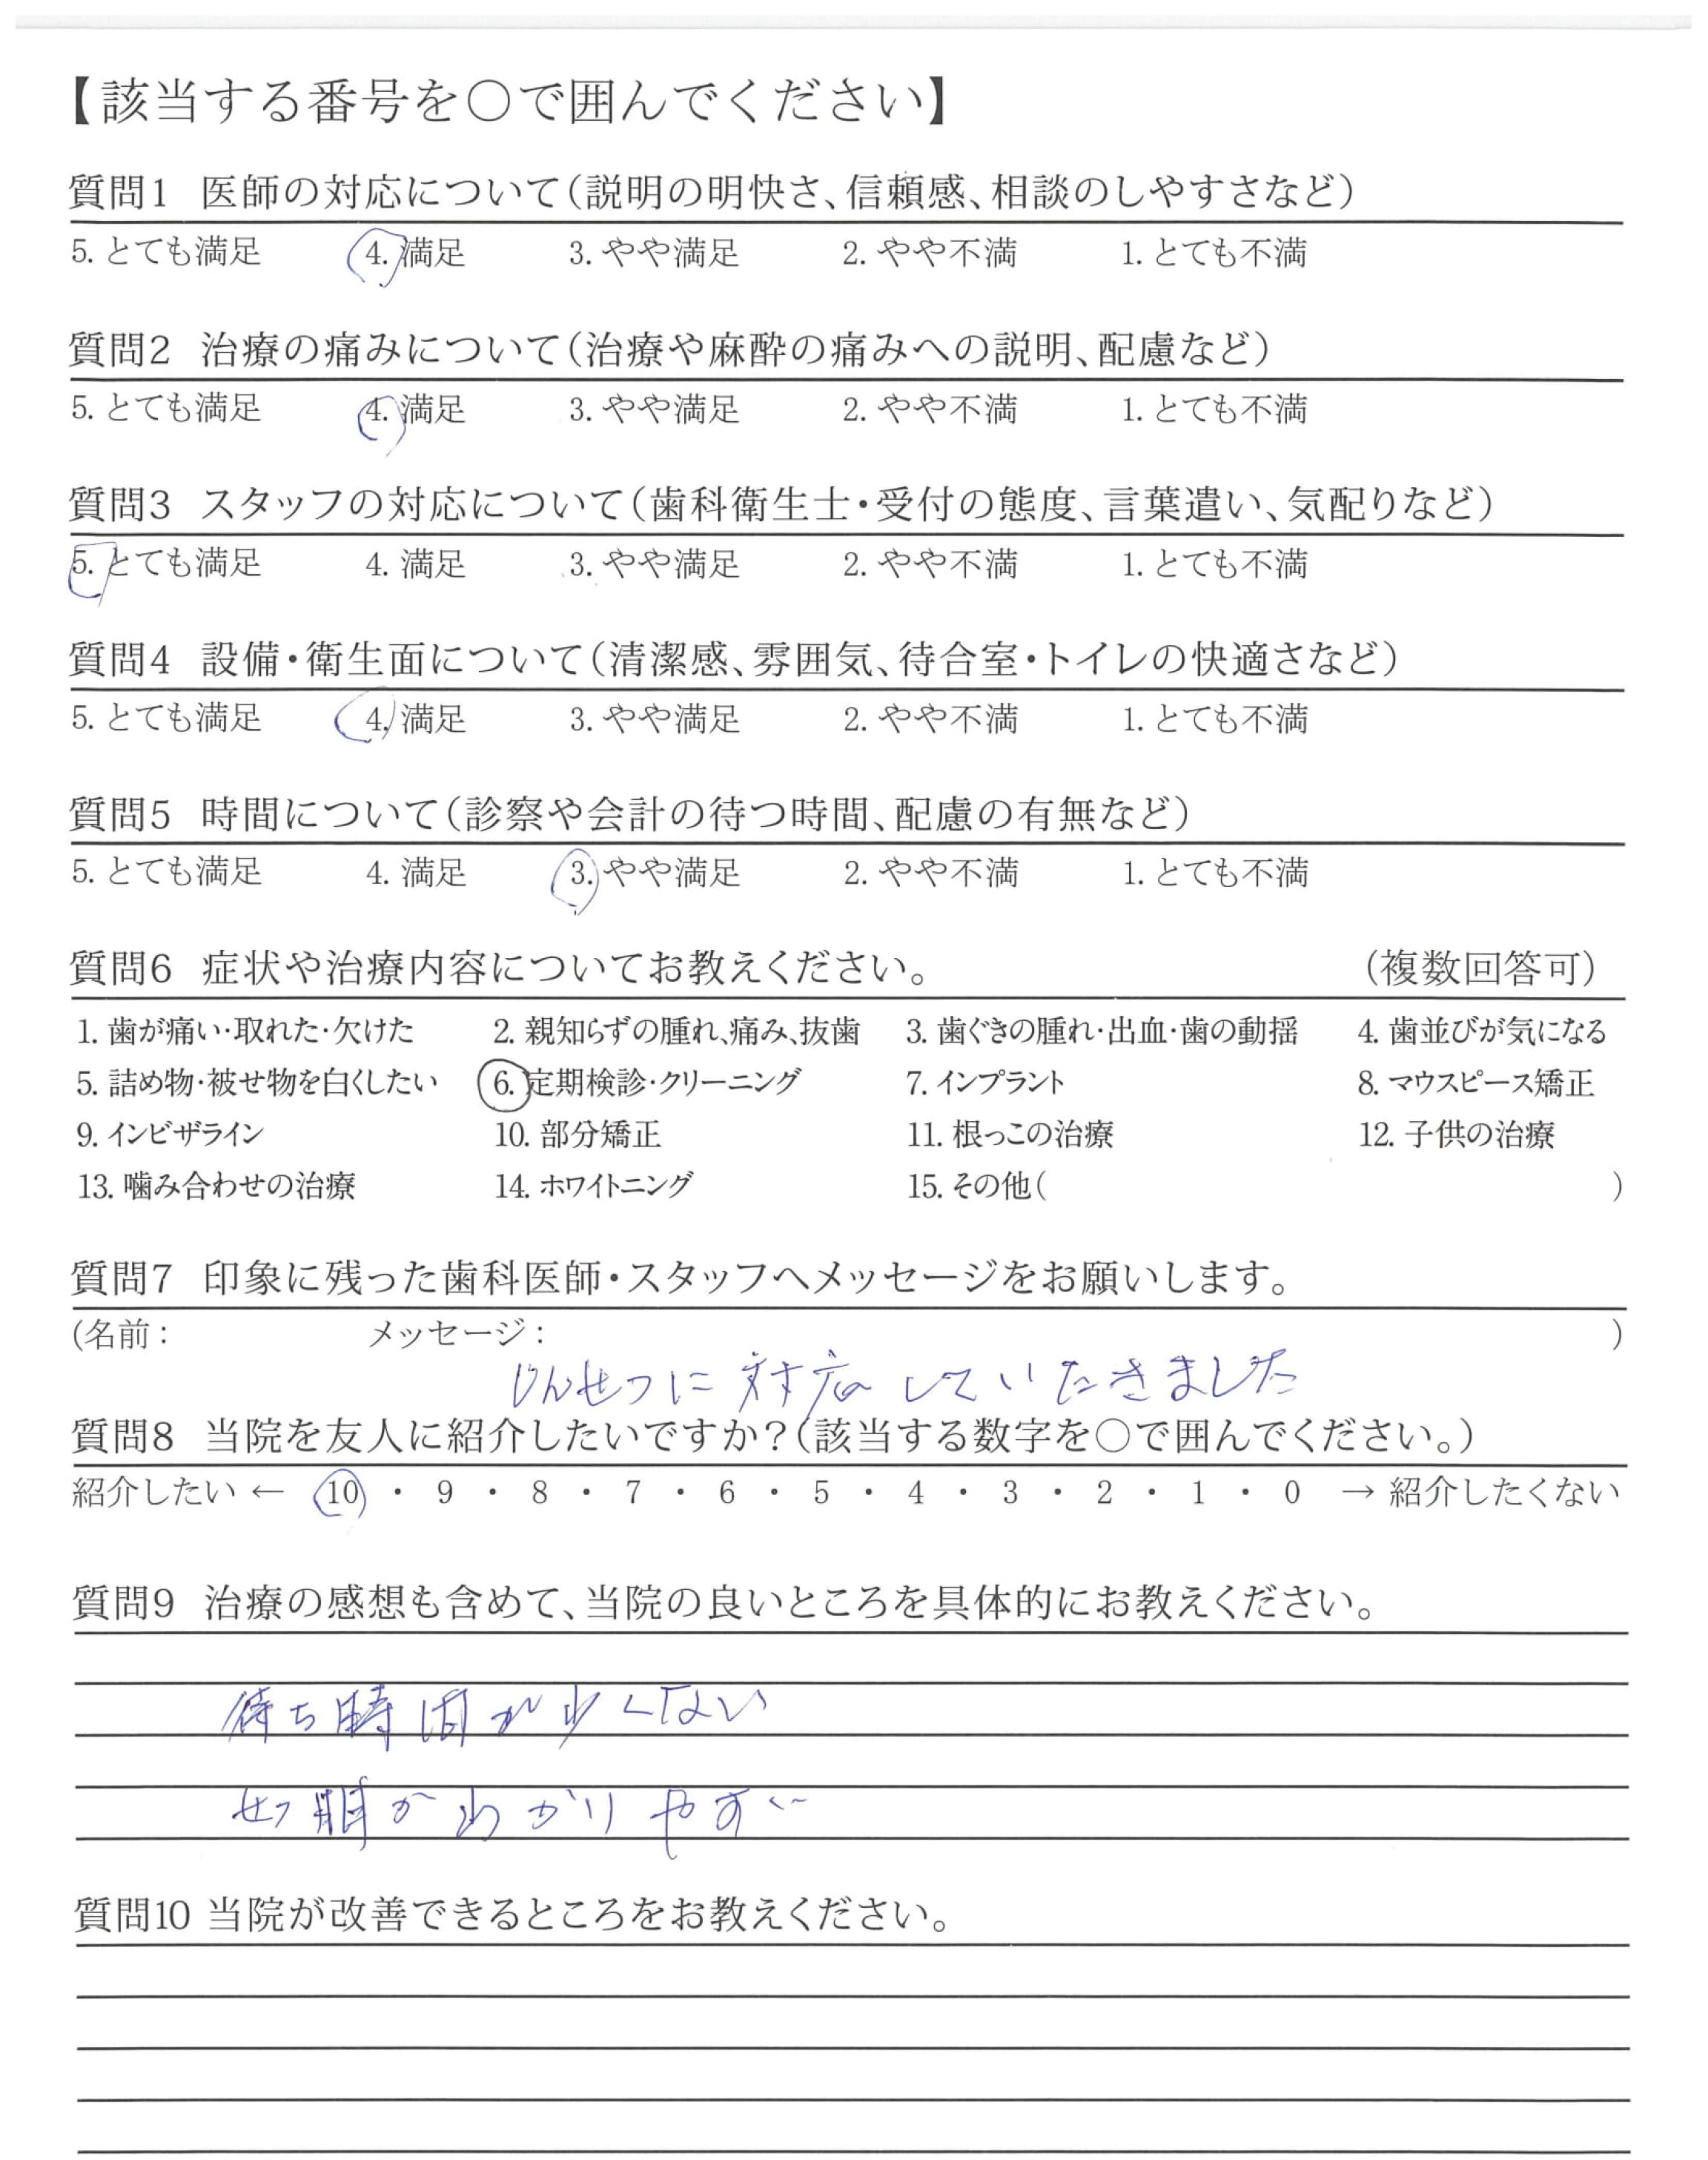 【該当する番号を○で囲んでください】
質問1 医師の対応について(説明の明快さ、信頼感、相談のしやすさなど)
5. とても満足 4. 満足 3. やや満足 2. やや不満 1. とても不満
質問2 治療の痛みについて(治療や麻酔の痛みへの説明、配慮など)
5. とても満足 4. 満足 3. やや満足 2. やや不満 1. とても不満
質問3 スタッフの対応について(歯科衛生士・受付の態度、言葉遣い、気配りなど)
5. とても満足 4. 満足 3. やや満足 2. やや不満 1. とても不満
質問4 設備・衛生面について(清潔感、雰囲気、待合室・トイレの快適さなど)
5. とても満足 4. 満足 3. やや満足 2. やや不満 1. とても不満
質問5 時間について(診察や会計の待つ時間、配慮の有無など)
5. とても満足 4. 満足 3. やや満足 2. やや不満 1. とても不満
質問6 症状や治療内容についてお教えください。 (複数回答可)
1. 歯が痛い・取れた・欠けた 2. 親知らずの腫れ、痛み、抜歯 3. 歯ぐきの腫れ・出血・歯の動揺 4. 歯並びが気になる
5. 詰め物・被せ物を白くしたい 6. 定期検診・クリーニング 7. インプラント 8. マウスピース矯正
9. インビザライン 10. 部分矯正 11. 根っこの治療 12. 子供の治療
13. 噛み合わせの治療 14. ホワイトニング 15. その他( )
質問7 印象に残った歯科医師・スタッフへメッセージをお願いします。
(名前: メッセージ: )
しんせつに 対応していたさきました
質問8 当院を友人に紹介したいですか?(該当する数字を○で囲んでください。)
紹介したい ← 10 ・ 9 ・ 8 ・ 7 ・ 6 ・ 5 ・ 4 ・ 3 ・ 2 ・ 1 ・ 0 → 紹介したくない
質問9 治療の感想も含めて、当院の良いところを具体的にお教えください。
待ち時間が少くない
せつ明がわかりやすい
質問10 当院が改善できるところをお教えください。